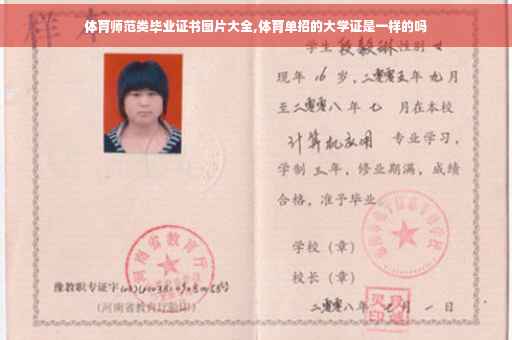 体育师范类毕业证书图片大全,体育单招的大学证是一样的吗
样本
学生 段毅琳 性别 女
现年 16 岁，二零零五年 九月
至二零零八 年 七 月在本校
计算机应用 专业学习，
学制 三 年，修业期满，成绩
合格，准予毕业
学校（章）
校长（章）
河南省教育厅
豫教职专证字
（河南省教育厅验印）
二零零八年 七 月 一 日